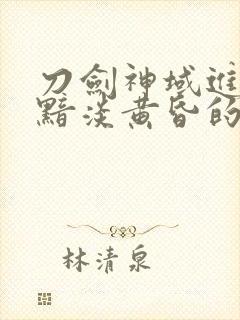 刀劍神域進
黯淡黃昏的
林清泉